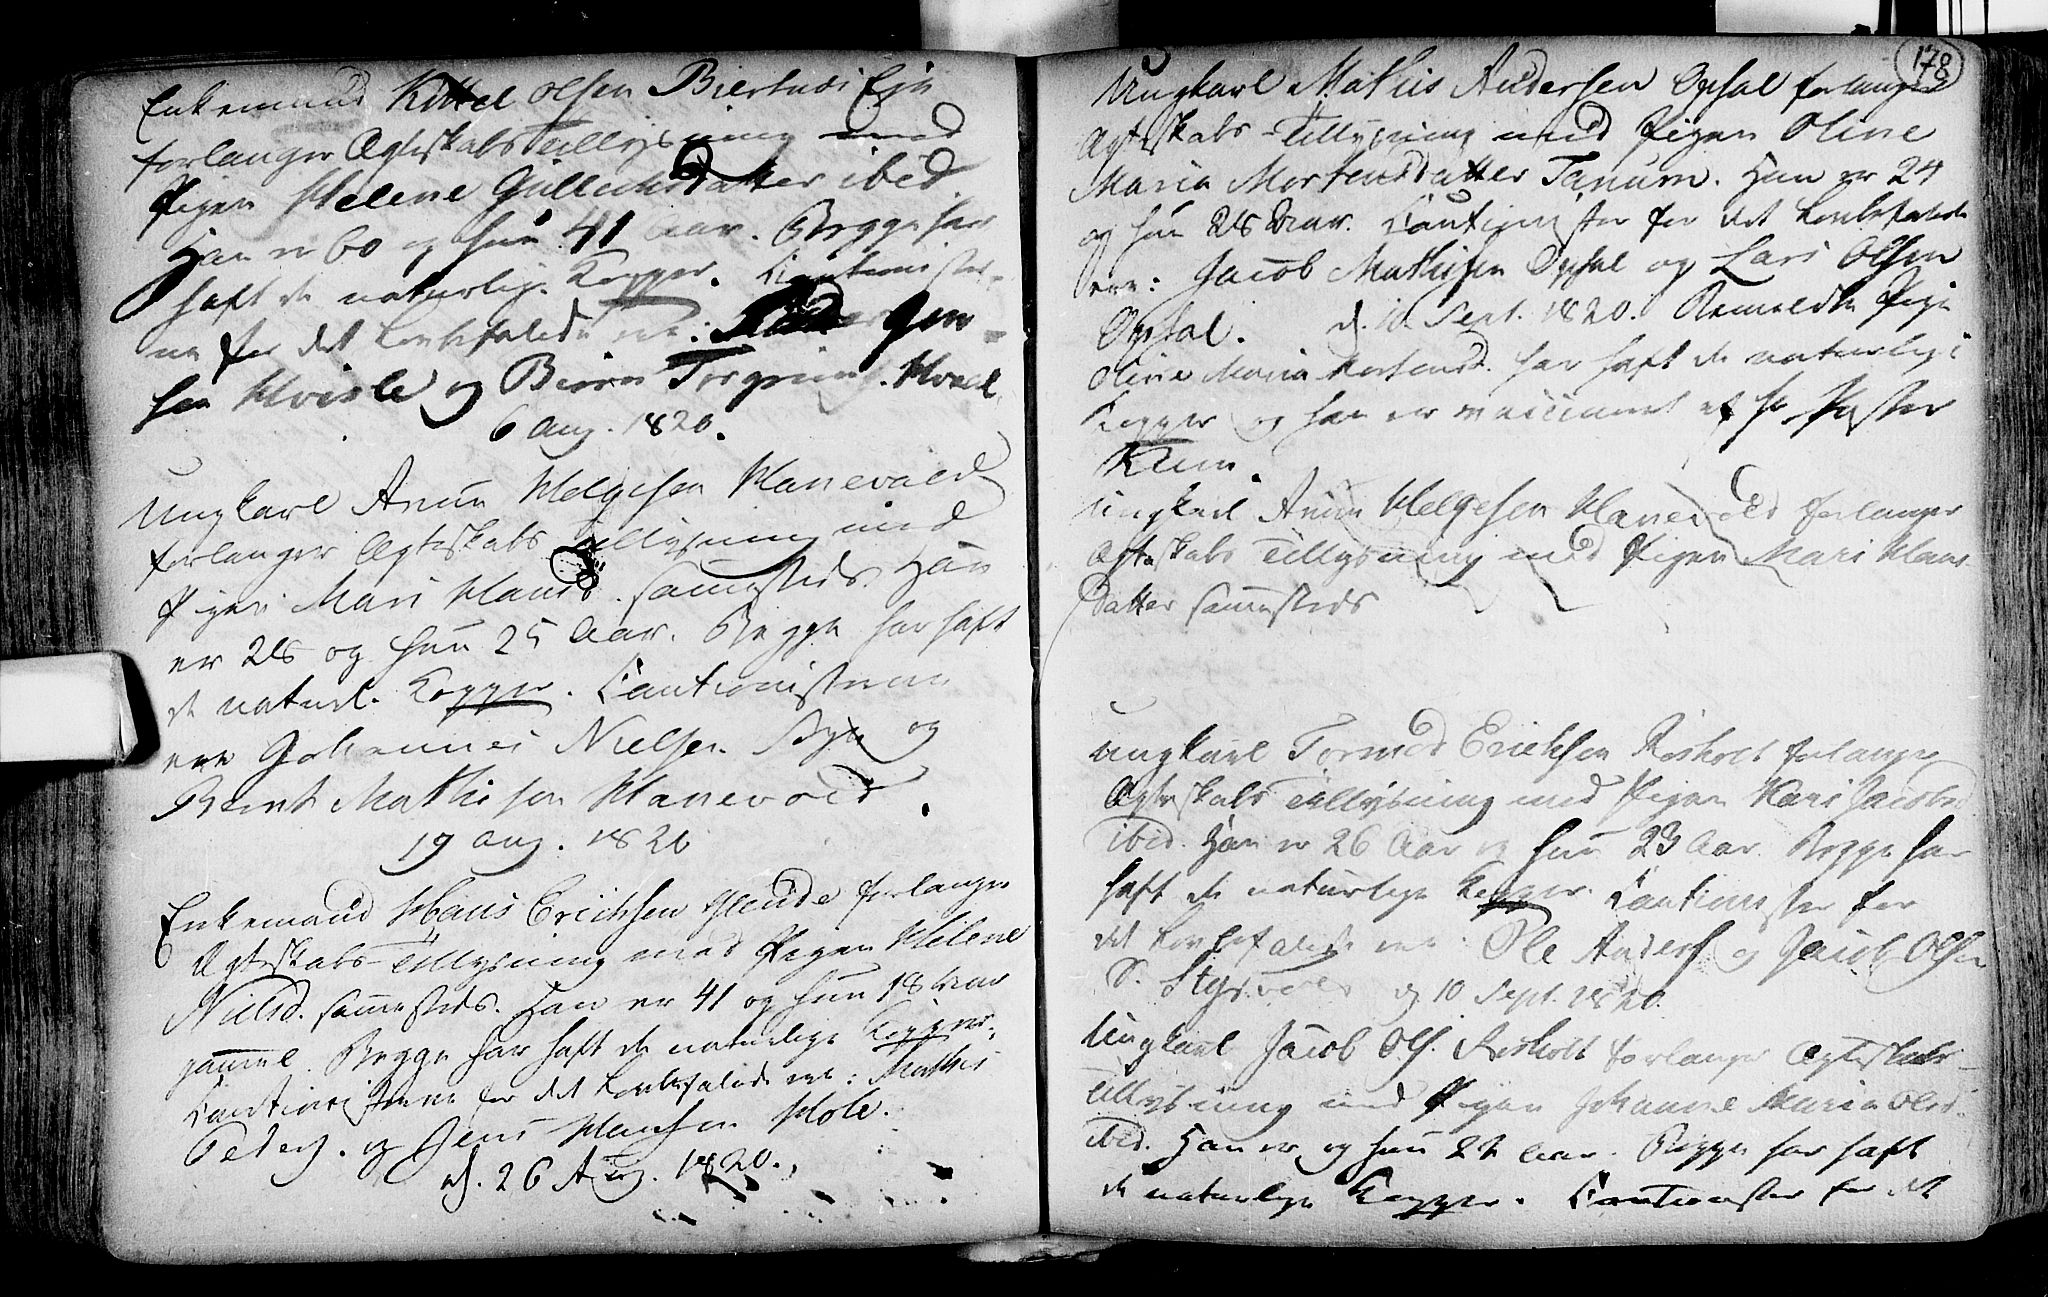 Enkemand Kittel Olsen Biertnæs Eje
forlanger Ægteskabs Tillysning med
Pigen Helene Gullichsdatter ibid.
Han er 60 og hun 41 Aar. Begge har
haft de naturlige Kopper. Cautionister-
ne for det Lovbefalede ere: Jen-
sen Hvisle og Biørn Torgrims. Hvael
6 Aug. 1820.
Ungkarl Anun Helgesen Hanevold
forlanger Ægteskabs Tillysning med
Pigen Mari Hansd. sammesteds. Han
er 28 og hun 25 Aar. Begge har haft
de naturl. Kopper. Cautionisterne
ere Johannes Nielsen Bye og
Bernt Mathisen Hanevold.
19 Aug. 1820
Enkemand Hans Erichsen forlanger
Ægteskabs-Tillysning med Pigen Helene
Nielsd. sammesteds. Han er 41 og hun 18 Aar
gammel. Begge har haft de naturlige Kopper.
Cautionisterne for det Lovbefalede ere: Mathis
Peders. og Jens Hansen Hole.
d. 26 Aug. 1820.
178
Ungkarl Mathis Andersen Opsal forlanger
Ægteskabs-Tillysning med Pigen Oline
Maria Mortensdatter Tanum. Han er 24
og hun 28 Aar. Cautionister for det Lovbefalede
ere: Jacob Mathisen Opsal og Lars Olsen
Opsal. d. Sept. 1820. Anmeldte Pige
Oline Maria Mortensd. har haft de naturlige
Kopper og han er vaccineret af Hr. Pastor
Ungkarl Anun Helgesen Hanevold forlanger
Ægteskabs Tillysning med Pigen Mari Hans
datter sammesteds
Ungkarl Tormod Erichsen Risholt forlanger
Ægteskabs Tillysning med Pigen Kari Jacobsd
ibid. Han er 26 Aar og hun 23 Aar. Begge har
haft de naturlige Kopper. Cautionister for
det Lovbefalede ere Ole Anders. og Jacob Olsen
S. d 10 Sept. 1820.
Ungkarl Jacob Ols. Risholt forlanger Ægteskabs-
Tillysning med Pigen Johanne Maria Olsd.
ibid. Han er og hun 22 Aar. Begge har haft
de naturlige Kopper. Cautionister for det